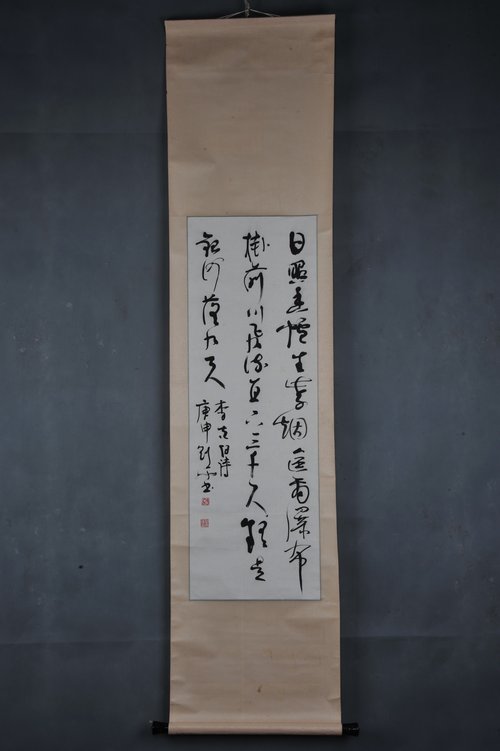 日照香爐生紫烟遥看瀑布
掛前川飛流直下三千尺疑是
銀河落九天
李太白詩
庚申劉書